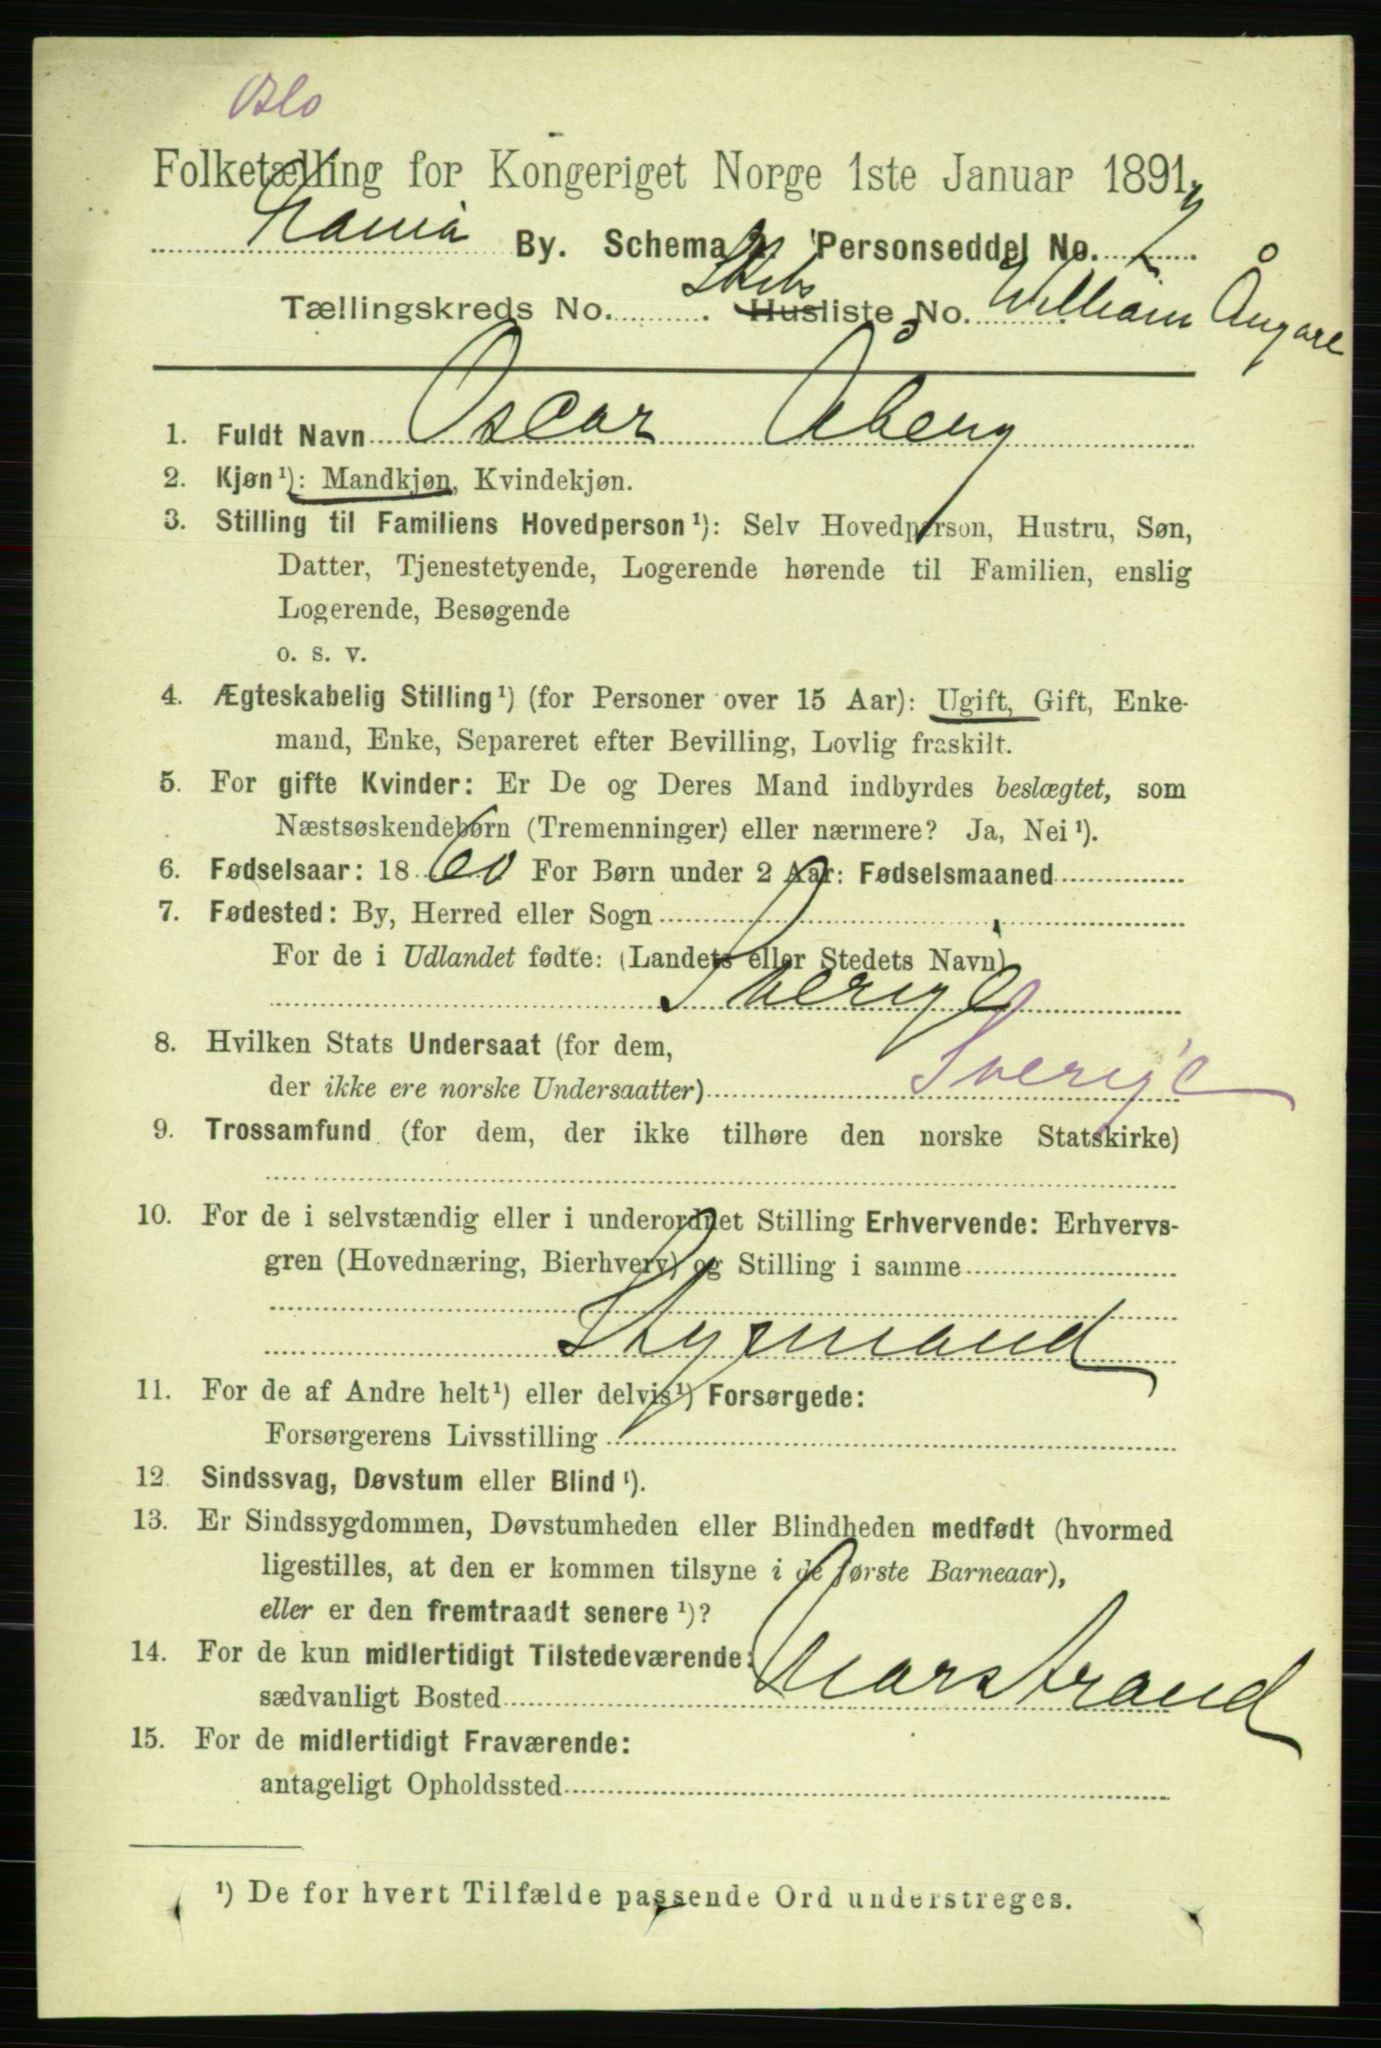 Oslo
Folketælling for Kongeriget Norge 1ste Januar 1891.
Xania By. Schema 2. Personseddel No. 2
Tællingskreds No. . Skibs Husliste No. William Ångare
1. Fuldt Navn Oscar Åberg
2. Kjøn¹): Mandkjøn, Kvindekjøn.
3. Stilling til Familiens Hovedperson¹): Selv Hovedperson, Hustru, Søn,
Datter, Tjenestetyende, Logerende hørende til Familien, enslig
Logerende, Besøgende
o. s. v.
4. Ægteskabelig Stilling¹) (for Personer over 15 Aar): Ugift, Gift, Enke-
mand, Enke, Separeret efter Bevilling, Lovlig fraskilt.
5. For gifte Kvinder: Er De og Deres Mand indbyrdes beslægtet, som
Næstsøskendebørn (Tremenninger) eller nærmere? Ja, Nei¹).
6. Fødselsaar: 1860 For Børn under 2 Aar: Fødselsmaaned
7. Fødested: By, Herred eller Sogn
For de i Udlandet fødte: (Landets eller Stedets Navn)
Sverige
8. Hvilken Stats Undersaat (for dem,
der ikke ere norske Undersaatter) Sverige
9. Trossamfund (for dem, der ikke tilhøre den norske Statskirke)
10. For de i selvstændig eller i underordnet Stilling Erhvervende: Erhvervs-
gren (Hovednæring, Bierhverv) og Stilling i samme
Stymand
11. For de af Andre helt¹) eller delvis¹) Forsørgede:
Forsørgerens Livsstilling
12. Sindssvag, Døvstum eller Blind¹).
13. Er Sindssygdommen, Døvstumheden eller Blindheden medfødt (hvormed
ligestilles, at den er kommen tilsyne i de første Barneaar),
eller er den fremtraadt senere¹)?
14. For de kun midlertidigt Tilstedeværende:
sædvanligt Bosted Marstrand
15. For de midlertidigt Fraværende:
antageligt Opholdssted
¹) De for hvert Tilfælde passende Ord understreges.